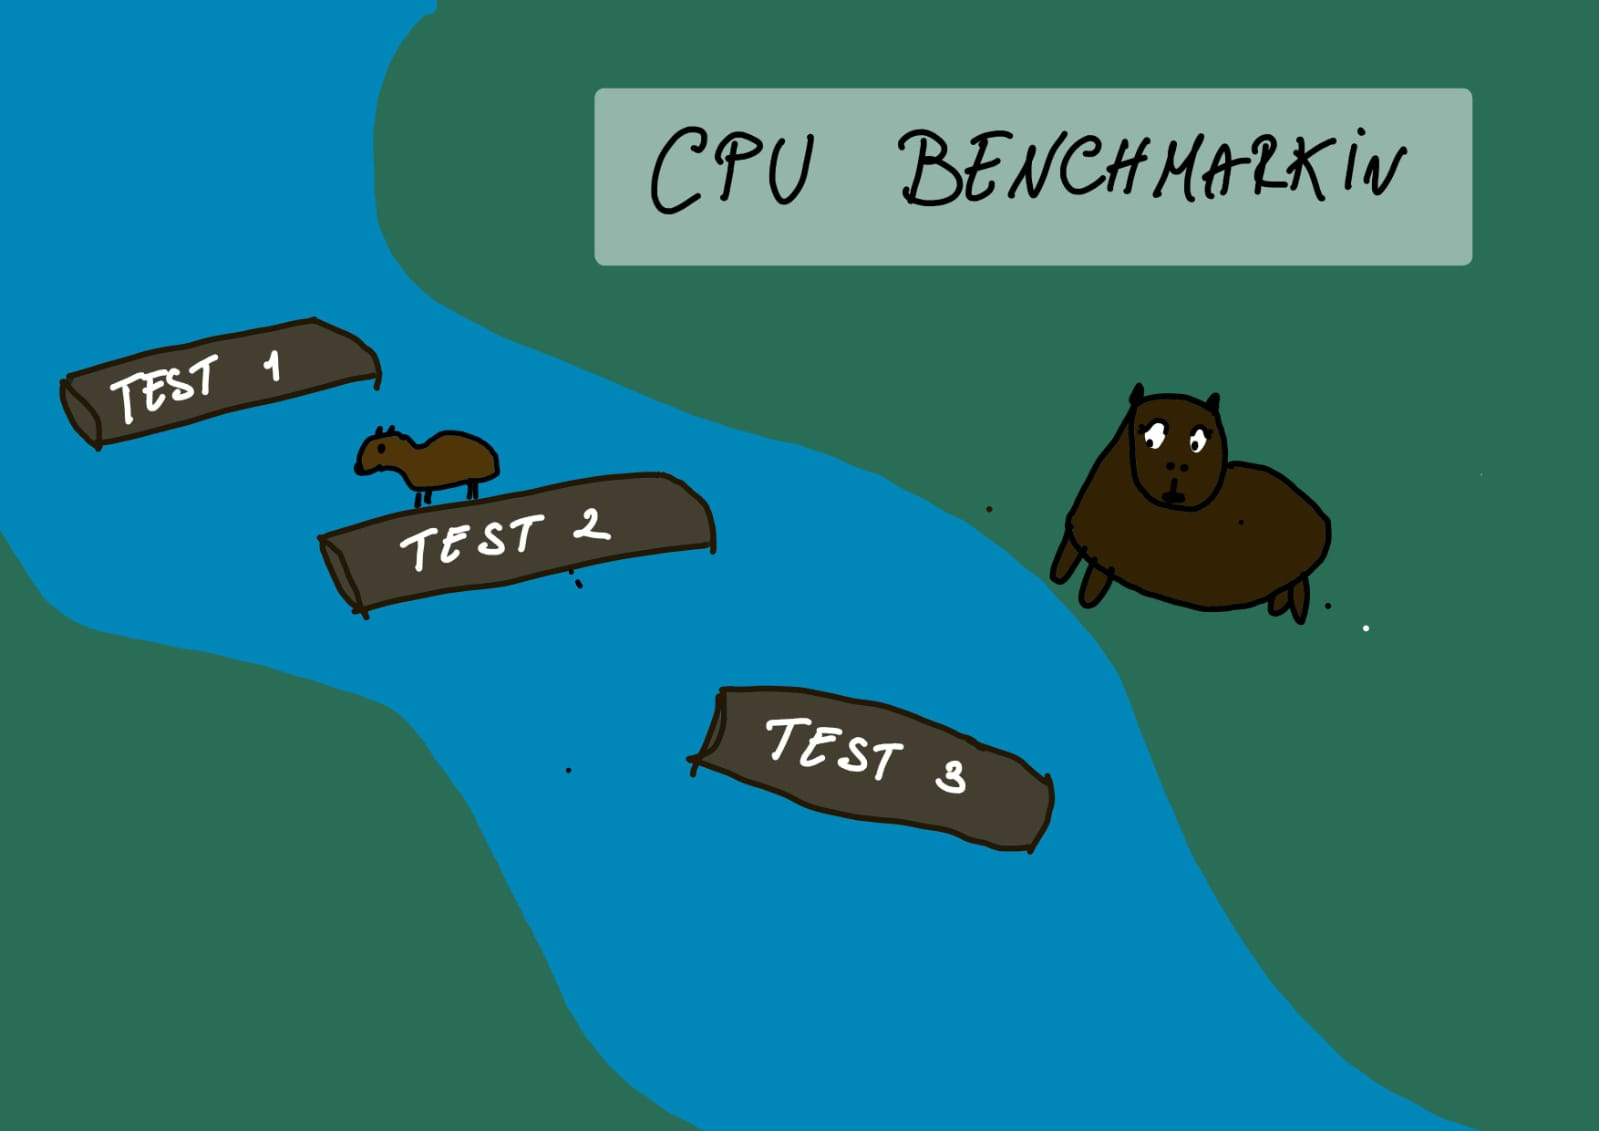 CPU BENCHMARKIN
TEST 1
TEST 2
TEST 3